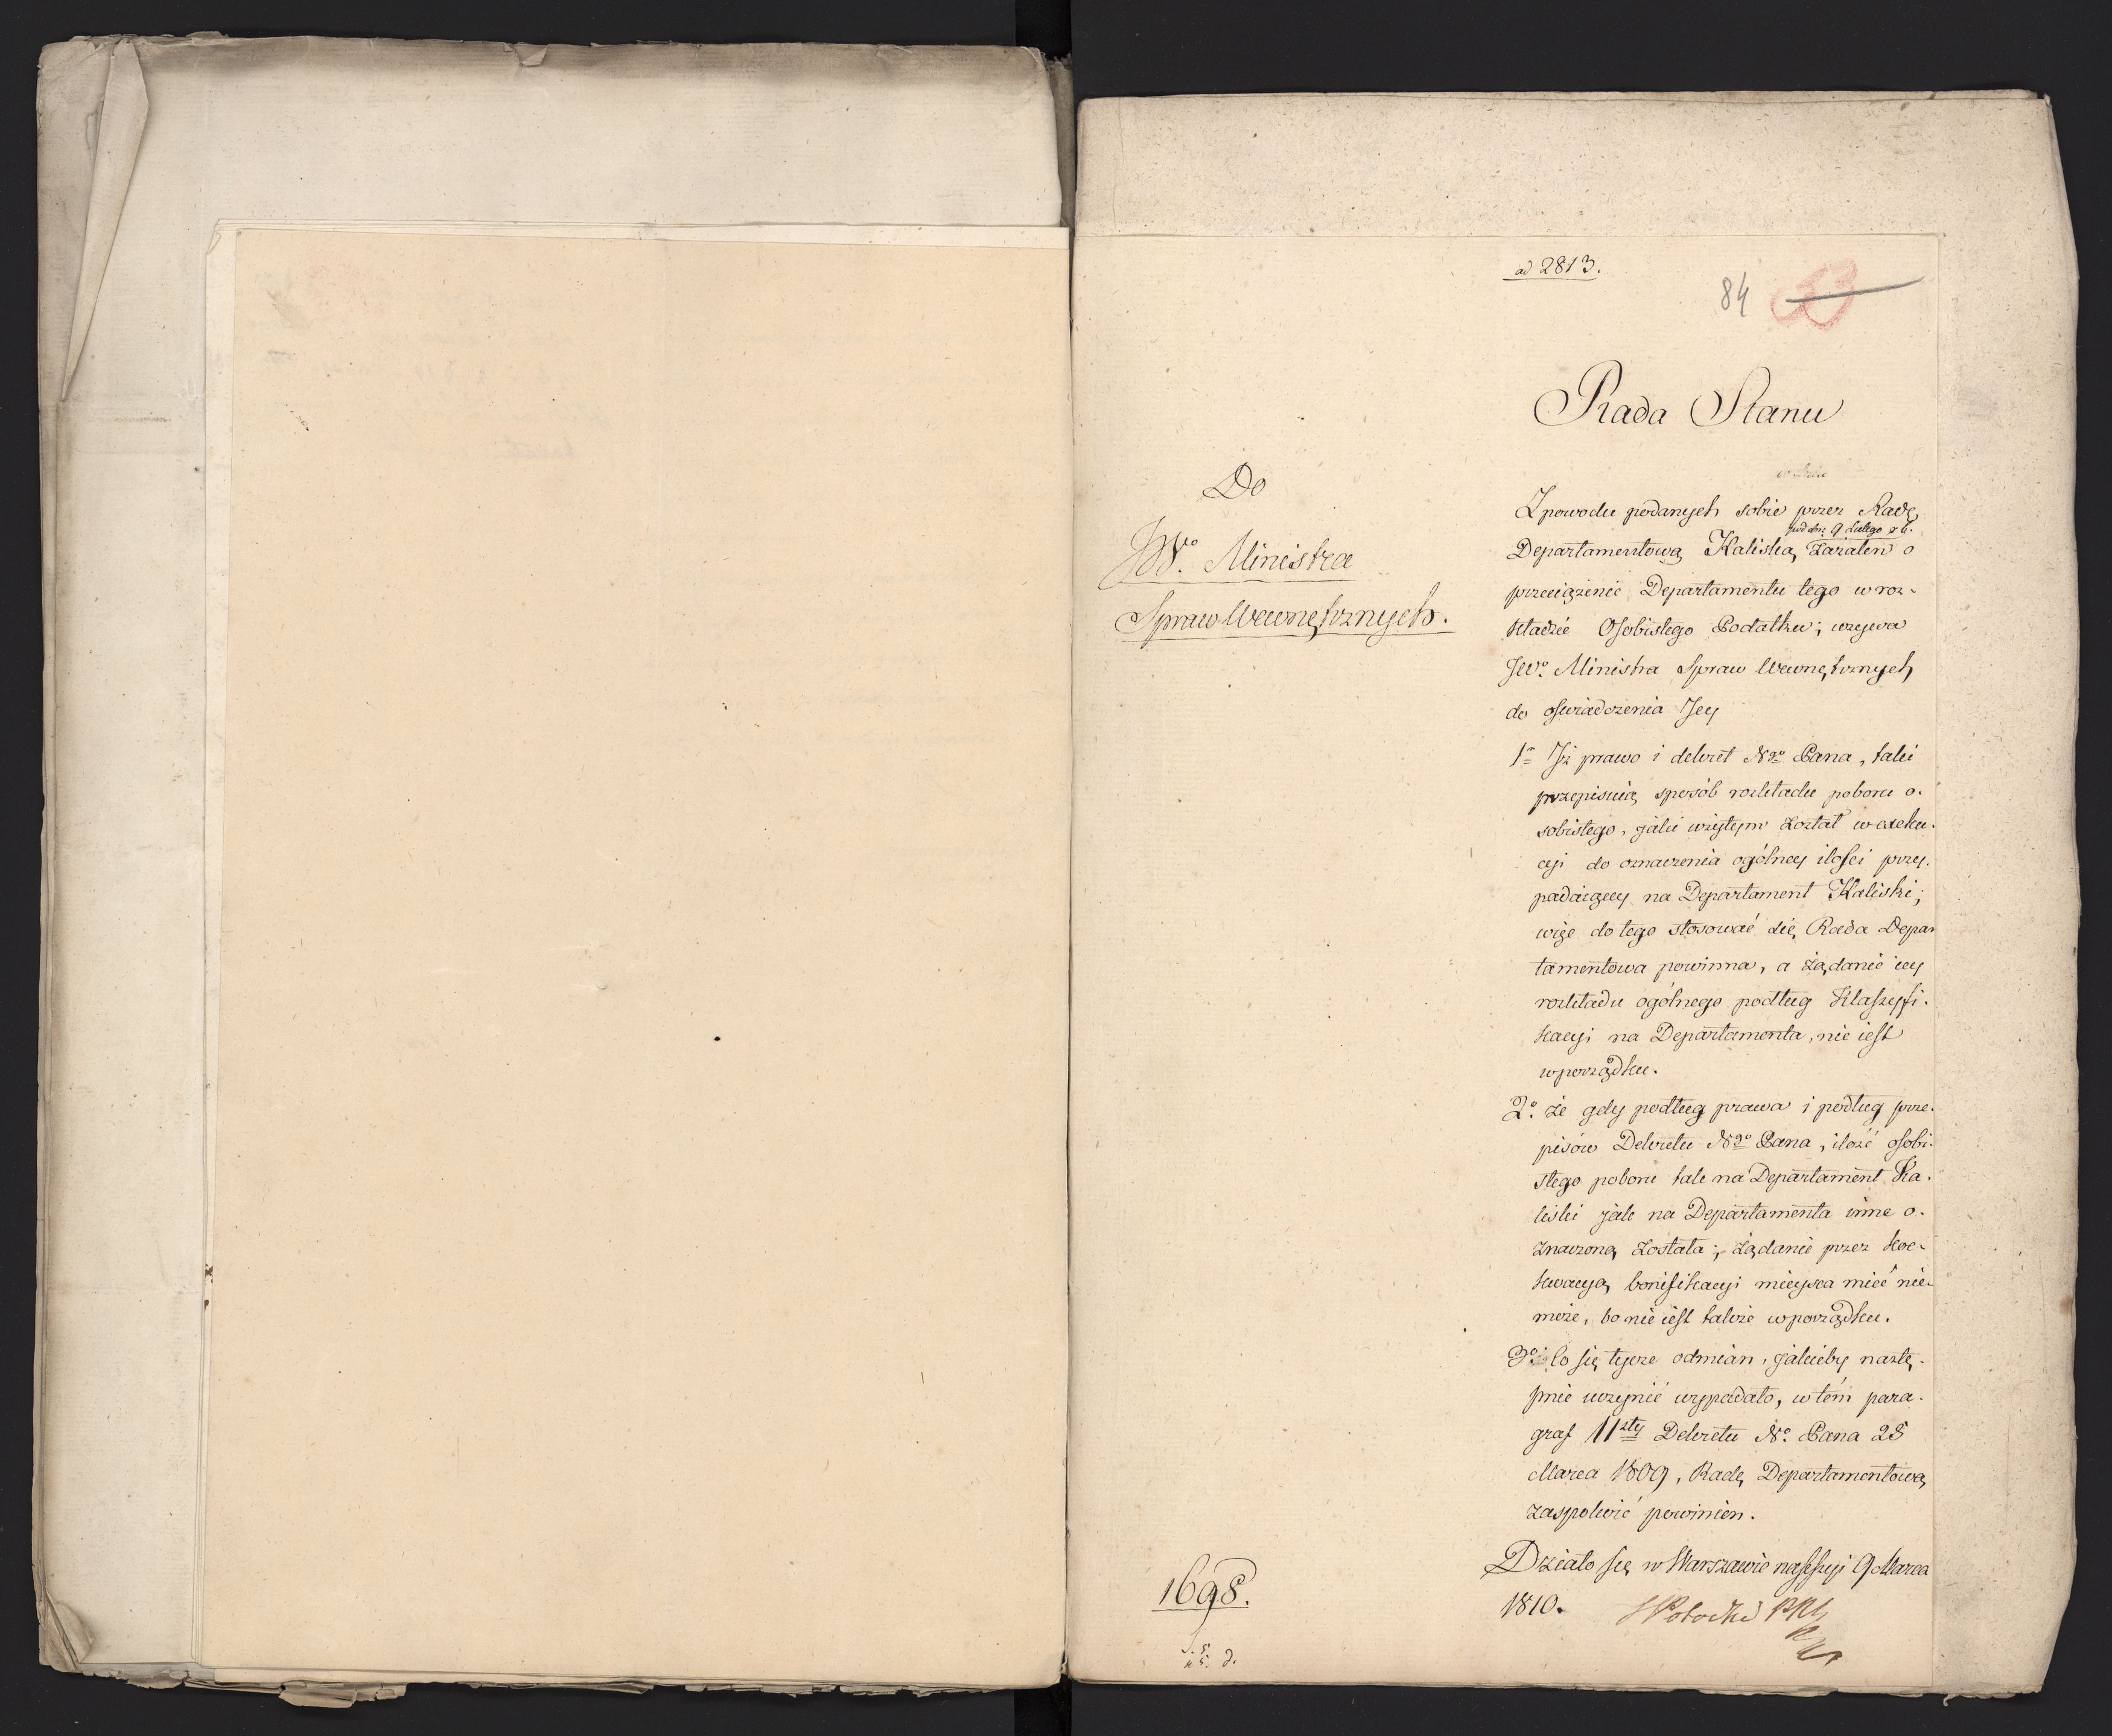 ad 2813.
84
53
Rada Stanu
Do
JWo. Ministra
Spraw Wewnętrznych.
Zpowodu podanych sobie przez Radę
pod dm: 9 Lutego r. b.
Departamentową Kaliską zażaleń o
przeciążenie Departamentu tego w roz-
kładzie Osobistego Podatku; wzywa
JWo. Ministra Spraw Wewnętrznych
do oświadczenia Jey
1o Iż prawo i dekret Ngo Pana, taki
przepisuią sposób rozkładu poboru o-
sobistego, jaki wziętym został w exeku-
cyi do oznaczenia ogólney ilości przy-
padaiącey na Departament Kaliski;
więc do tego stosować się Rada Depar
tamentowa powinna, a żądanie iey
rozkładu ogólnego podług Klassyfi-
kacyi na Departamenta, nie iest
w porządku.
2o. że gdy podług prawa i podług prze-
pisów Dekretu Ngo Pana, ilość osobi-
stego poboru tak na Departament Ka-
liski jak na Departamenta inne o-
znaczoną została; żądanie przez
bonifikacyi mieysca mieć nie-
może, bo nie iest także w porządku.
3o. Co się tycze odmian, jakieby nastę-
pnie uczynić wypadało, w tém para-
graf 11sty Dekretu No. Pana 28
Marca 1809, Radę Departamentową
zaspokoić powinien.
Działo się w Warszawie na Sessyi 9 Marca
1810.
S Potocki PRS
1698.